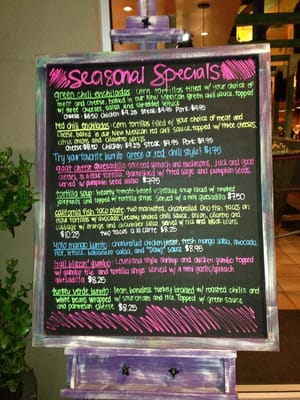 Seasonal Specials
green chili enchiladas: corn tortillas filled w/ your choice of
meat and cheese, baked in our New Mexican green chili sauce, topped
w/ three cheeses, salsa and shredded lettuce
Cheese · $8.50 Chicken $9.25 Steak · $9.95 Pork · $9.95
red chili enchiladas: corn tortillas filled w/ your choice of meat and
cheese, baked in our New Mexican red chili sauce, topped w/ three cheeses,
citrus onions and cilantro sprigs
Chicken $9.25 Steak · $9.95 Pork · $9.95
Try your favorite burrito green or red chili style! $1.75
goat cheese quesadilla: sauteed spinach and mushrooms, jack and goat
cheese, in a flour tortilla, garnished w/ fried sage and pumpkin seeds,
served w/ pumpkin seed salsa
tortilla soup: hearty roasted vegetable soup laced w/ roasted
and topped w/ tortilla strips. Served w/ a mini quesadilla $7.50
california fish taco plate: two marinated, charbroiled tacos on
flour tortillas w/ avocado, creamy chili sauce, onion, cilantro and
cabbage w/ orange and cucumber salsa. Served w/ rice and black beans.
$10.25 two tacos a la carte $8.25
Yolo mango burrito: charbroiled chicken breast, fresh mango salsa, avocado,
rice, lettuce, sauce $8.95
trail blazin' gumbo: Louisiana style shrimp and chicken gumbo topped
w/ gumbo file and tortilla strips. Served w/ a mini quesadilla
$8.25
turkey verde burrito: lean, boneless turkey braised w/ roasted chilis and
white beans wrapped w/ sour cream and rice. Topped w/ green sauce
and parmesan cheese $8.25